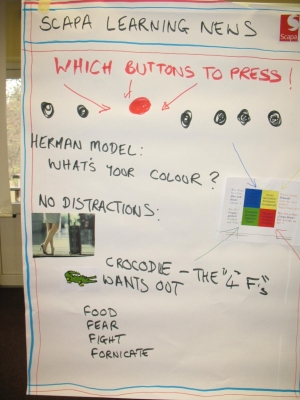 SCAPA LEARNING NEWS
Scapa
WHICH BUTTONS TO PRESS!
HERMAN MODEL:
WHAT'S YOUR COLOUR?
NO DISTRACTIONS:
CROCODIE - THE "4" F's
WANTS OUT
FOOD
FEAR
FIGHT
FORNICATE